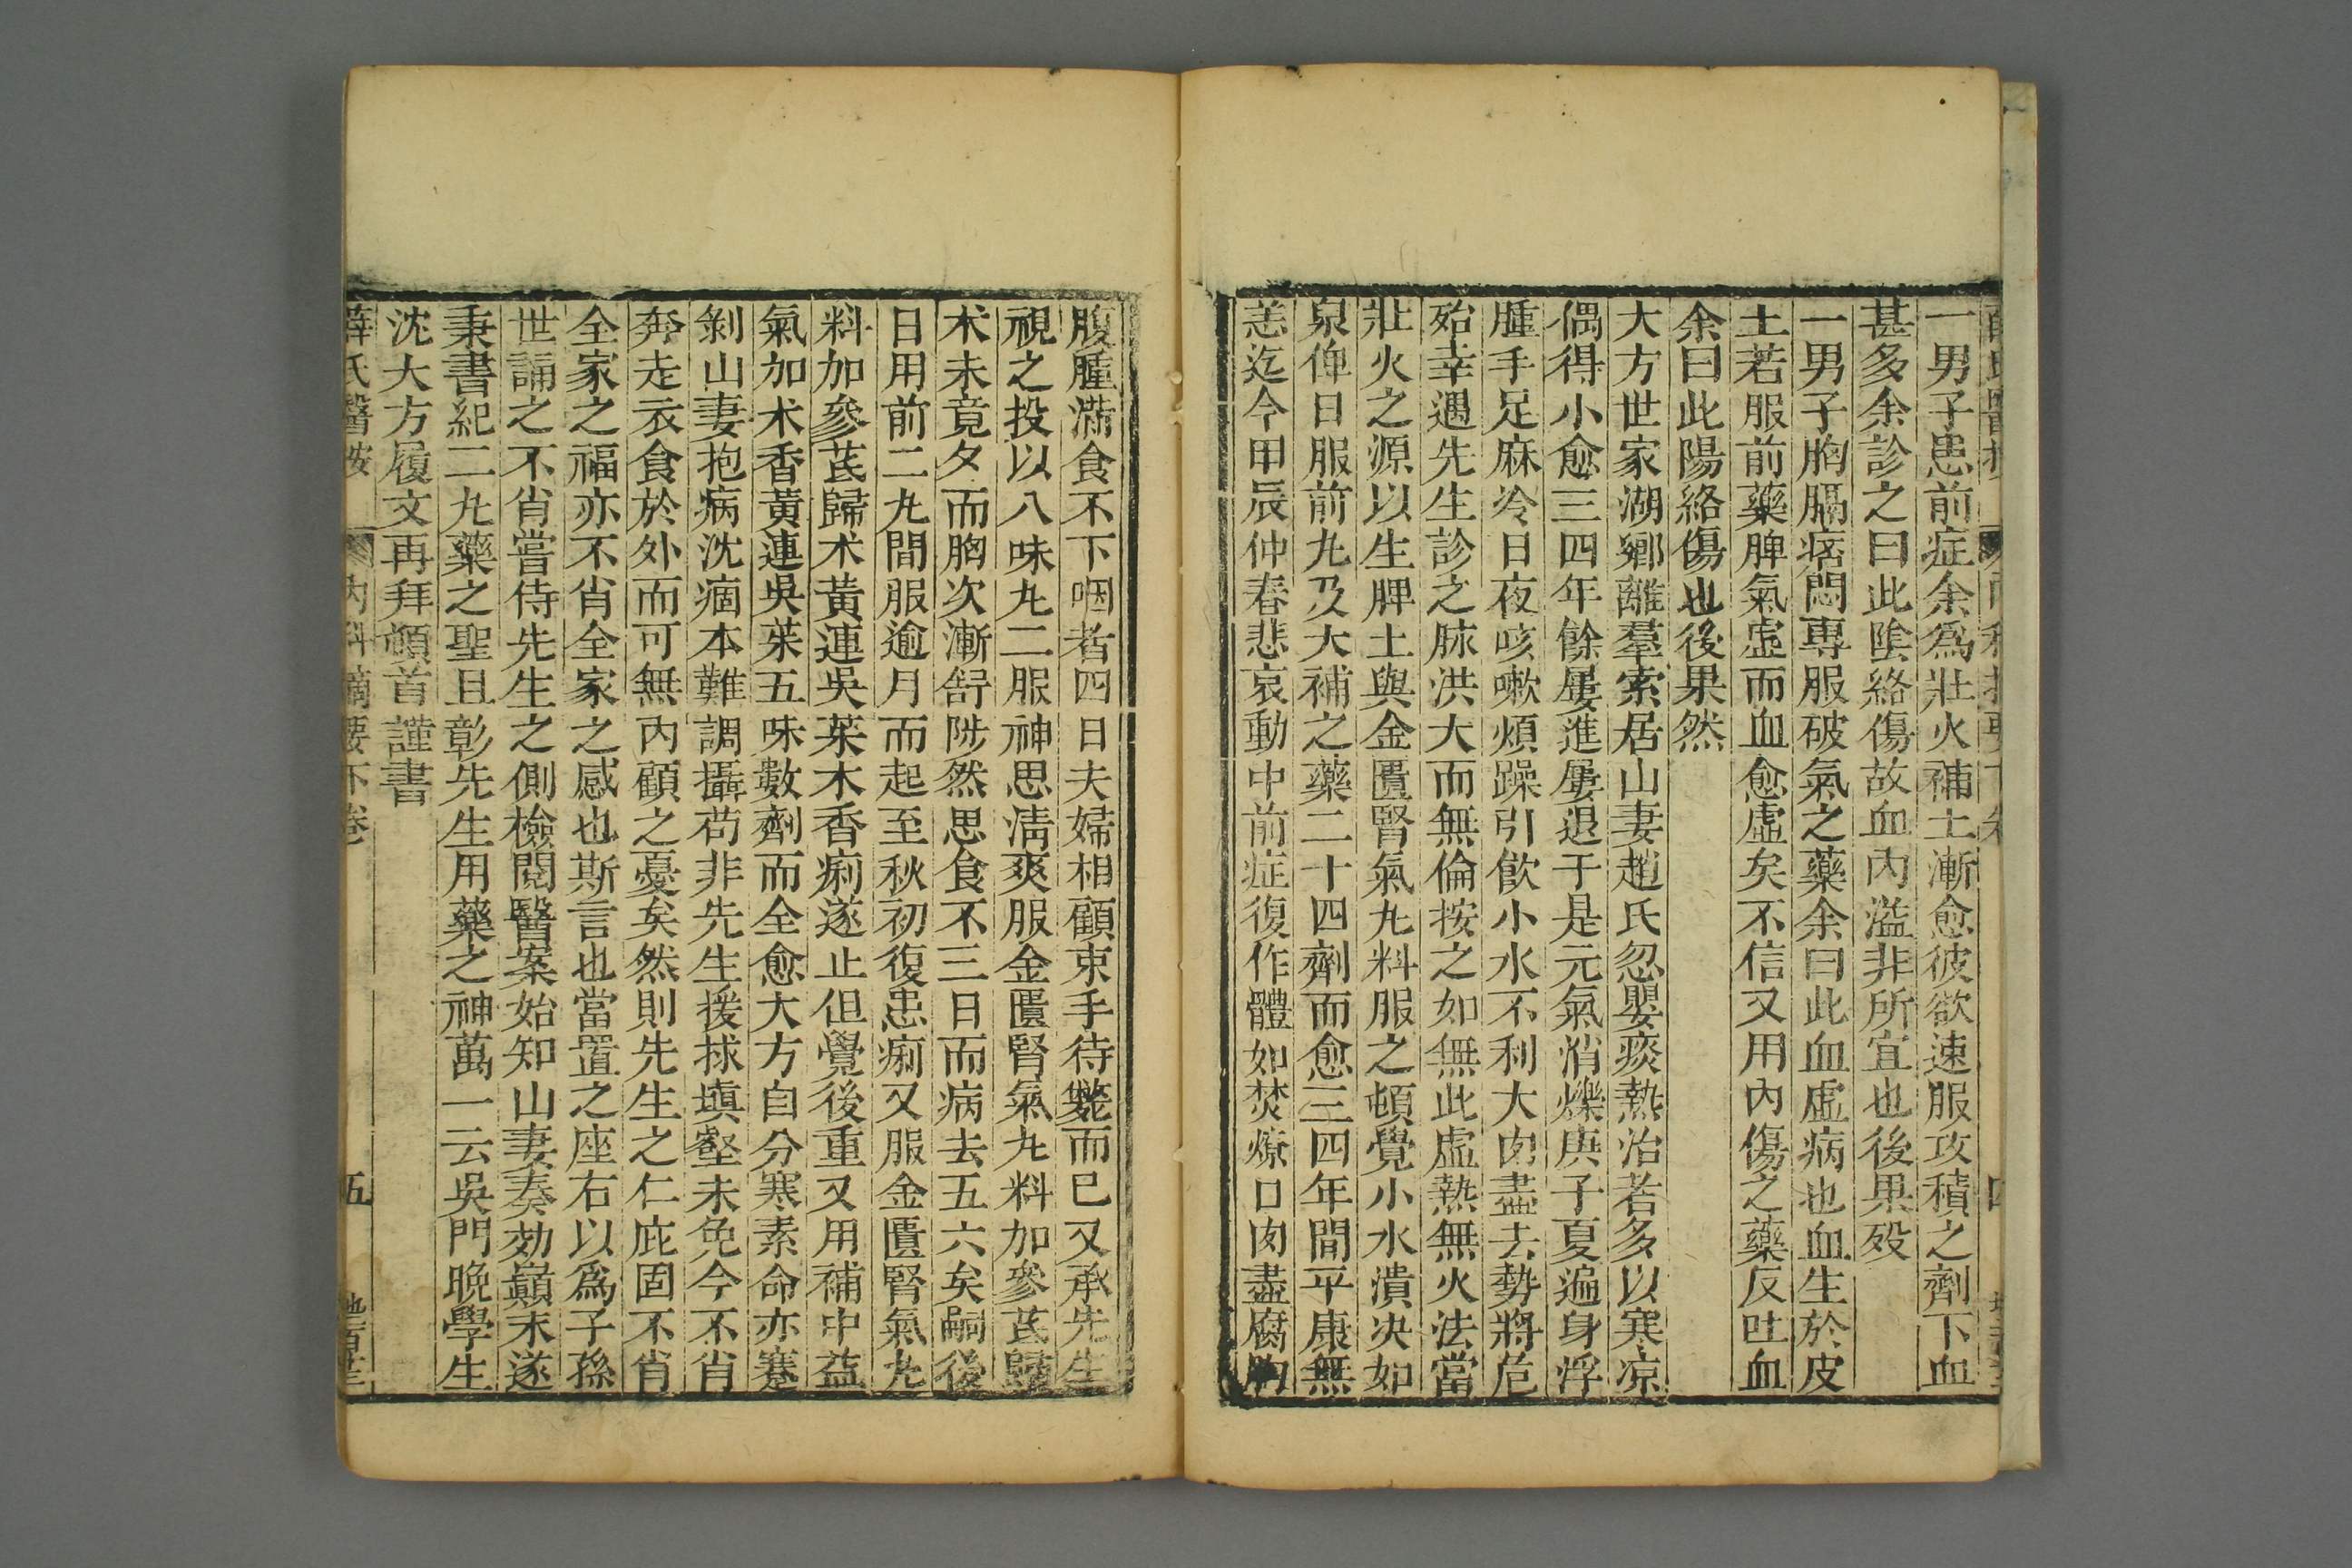 一男子患前症余爲壯火補土漸愈彼欲速服攻積之劑下血
甚多余診之曰此陰絡傷故血內溢非所宜也後果歿
一男子胸膈痞悶專服破氣之藥余曰此血虛病也血生於皮
土若服前藥脾氣虛而血愈虛矣不信又用內傷之藥反吐血
余曰此陽絡傷也後果然
大方世家湖鄉離羣索居山妻趙氏忽嬰痰熱治者多以寒凉
偶得小愈三四年餘屢進屢退于是元氣消爍庚子夏遍身浮
腫手足麻冷日夜咳嗽煩躁引飲小水不利大肉盡去勢將危
殆幸遇先生診之脉洪大而無倫按之如無此虛熱無火法當
壯火之源以生脾土與金匱腎氣丸料服之頓覺小水潰决如
泉俾日服前丸及大補之藥二十四劑而愈三四年間平康無
恙迄今甲辰仲春悲哀動中前症復作體如焚燎口肉盡腐胸
腹腫滿食不下咽者四日夫婦相顧束手待斃而已又承先生
視之投以八味丸二服神思清爽服金匱腎氣丸料加參芪歸
术未竟夕而胸次漸舒陟然思食不三日而病去五六矣嗣後
日用前二丸間服逾月而起至秋初復患痢又服金匱腎氣丸
料加參芪歸术黃連吳茱木香痢遂止但覺後重又用補中益
氣加木香黃連吳茱五味數劑而全愈大方自分寒素命亦蹇
剝山妻抱病沈痼本難調攝苟非先生援捄塡壑未免今不肖
奔走衣食於外而可無內顧之憂矣然則先生之仁庇固不肖
全家之福亦不肖全家之感也斯言也當置之座右以爲子孫
世誦之不肖嘗侍先生之側檢閱醫案始知山妻奏効巔末遂
秉書紀二丸藥之聖且彰先生用藥之神萬一云吳門晚學生
沈大方履文再拜頓首謹書
薛氏醫按 內科摘要下卷 五